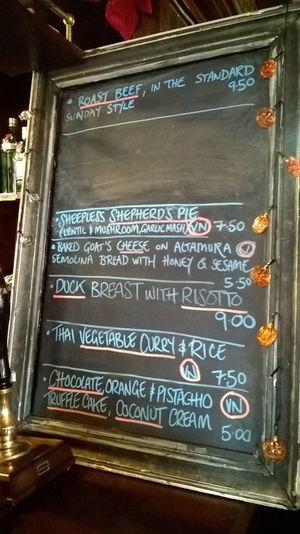 • ROAST BEEF, IN THE STANDARD
SUNDAY STYLE 9.50
• SHEEPLESS SHEPHERD'S PIE
LENTIL & MUSHROOM, GARLIC MASH, VN 7.50
• BAKED GOAT'S CHEESE ON ALTAMURA V
SEMOLINA BREAD WITH HONEY & SESAME
5.50
• DUCK BREAST WITH RISOTTO
9.00
• THAI VEGETABLE CURRY & RICE
VN 7.50
• CHOCOLATE, ORANGE & PISTACHIO VN
TRUFFLE CAKE, COCONUT CREAM
5.00